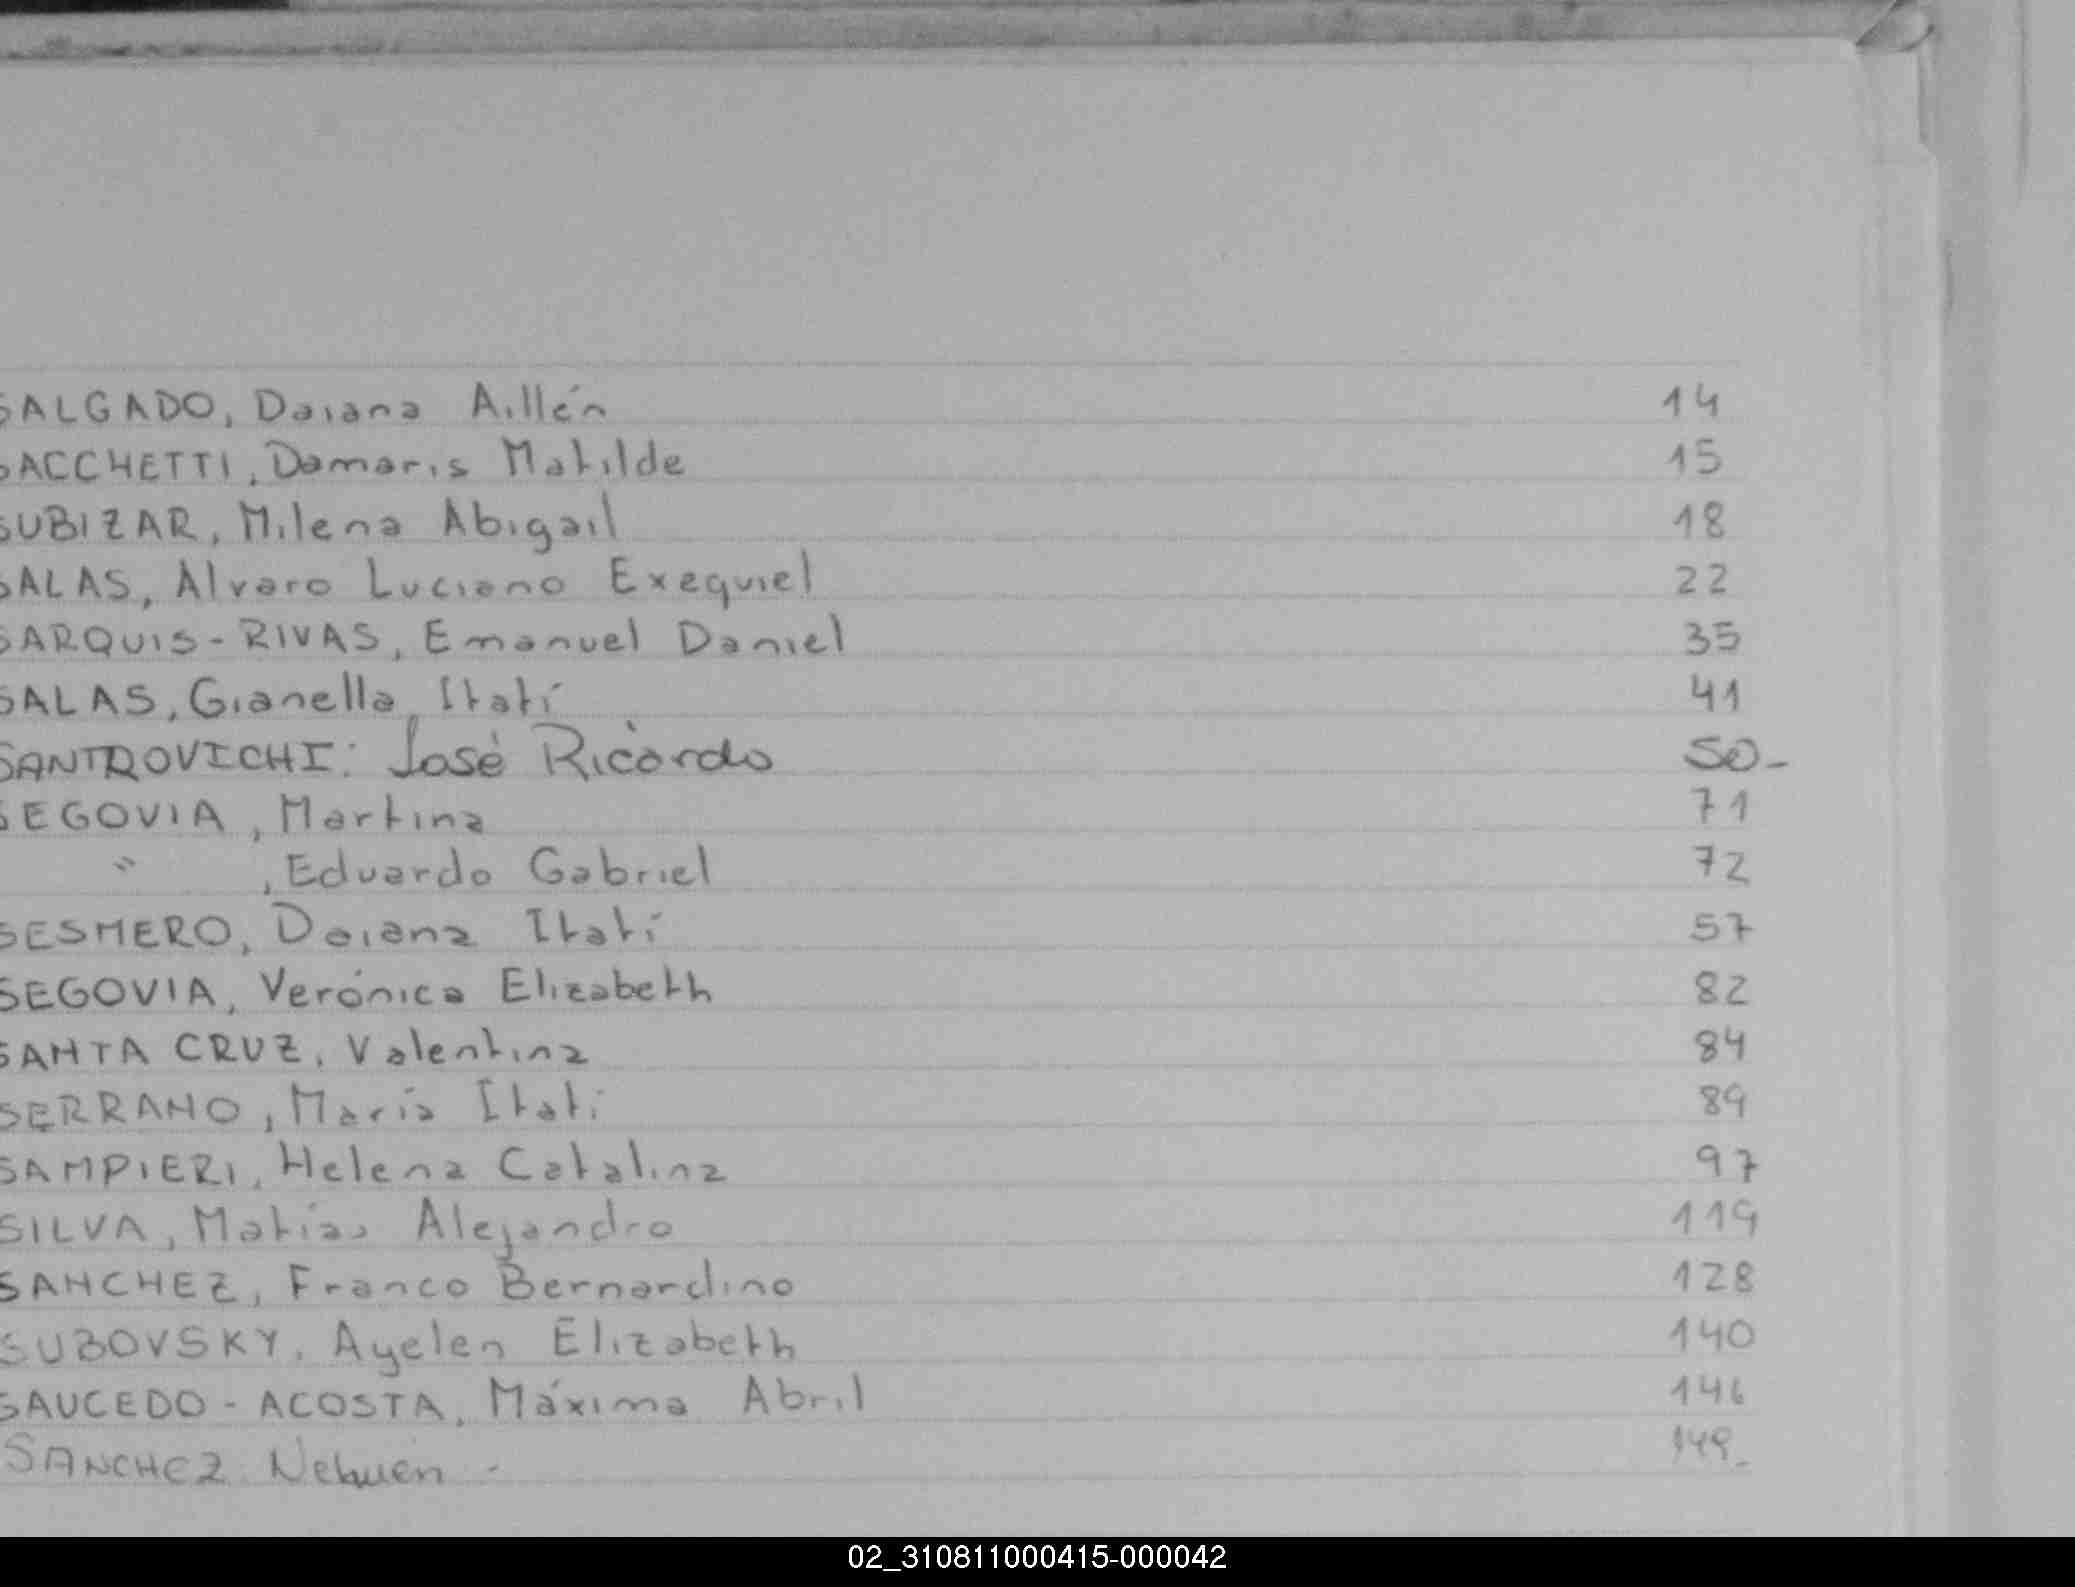 SALGADO, Daiana Aillén 14
SACCHETTI, Damaris Matilde 15
SUBIZAR, Milena Abigail 18
SALAS, Alvaro Luciano Exequiel 22
SARQUIS-RIVAS, Emanuel Daniel 35
SALAS, Gianella Itatí 41
SANTROVICHI: José Ricardo 50-
SEGOVIA, Martina 71
" , Eduardo Gabriel 72
SESMERO, Daiana Itatí 57
SEGOVIA, Verónica Elizabeth 82
SANTA CRUZ, Valentina 84
SERRANO, María Itatí 89
SAMPIERI, Helena Catalina 97
SILVA, Matías Alejandro 119
SANCHEZ, Franco Bernardino 128
SUBOVSKY, Ayelen Elizabeth 140
SAUCEDO - ACOSTA, Máxima Abril 146
SANCHEZ Nehuen - 149-
02_310811000415-000042